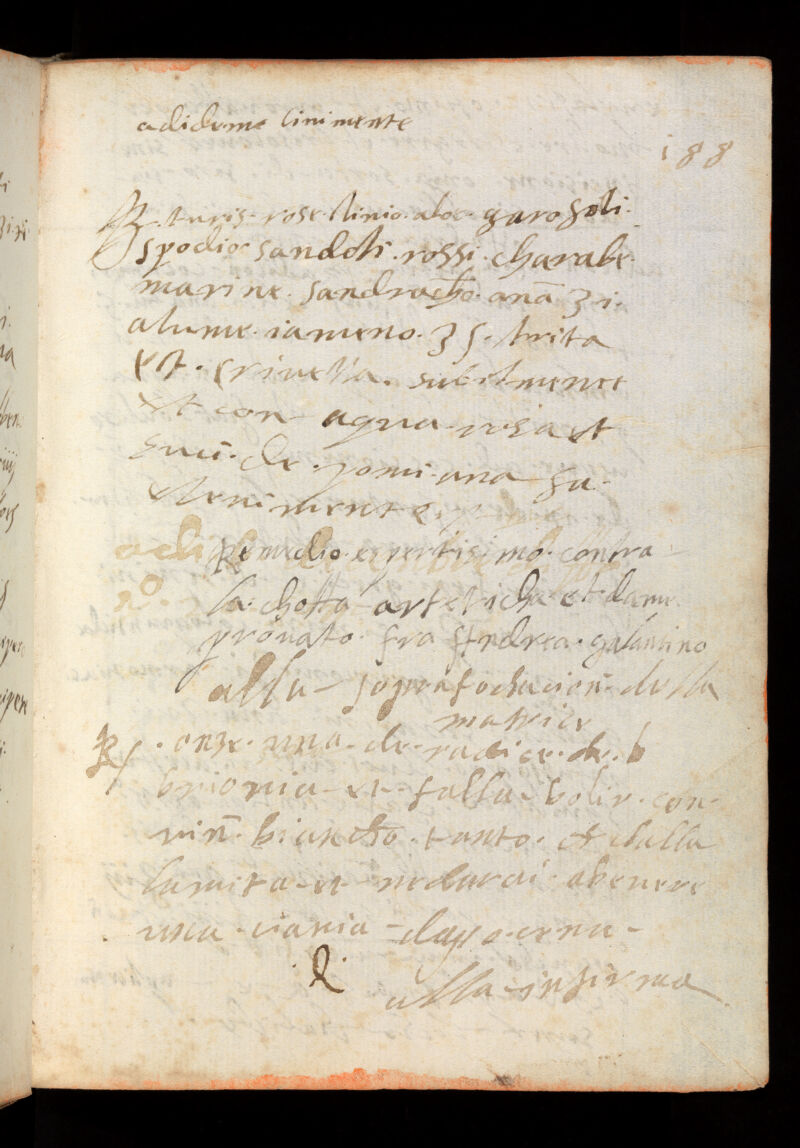 adideme linimente
188
turis. rose. linio. aloe. garofoli.
spodio. sandoli. rossi. charabe.
marine. sandracho. anā ʒ i.
alume. iameno. ʒ s. trita
et. crivella. subtilmente
et con aqua rosa et
suci. de. pomi. ana fa.
remedio. espertisimo. contra
la. chotta arteticha et dame
provato. fra Andrea. galantino
alla soprafochacion. della
matrice
℞ . onze. una. de. radice. de. b
brionia et falla. bolir. con
vin. biancho. tanto. che challa
la mita et ne darai abevere
una. dapo. cena
alla inferma